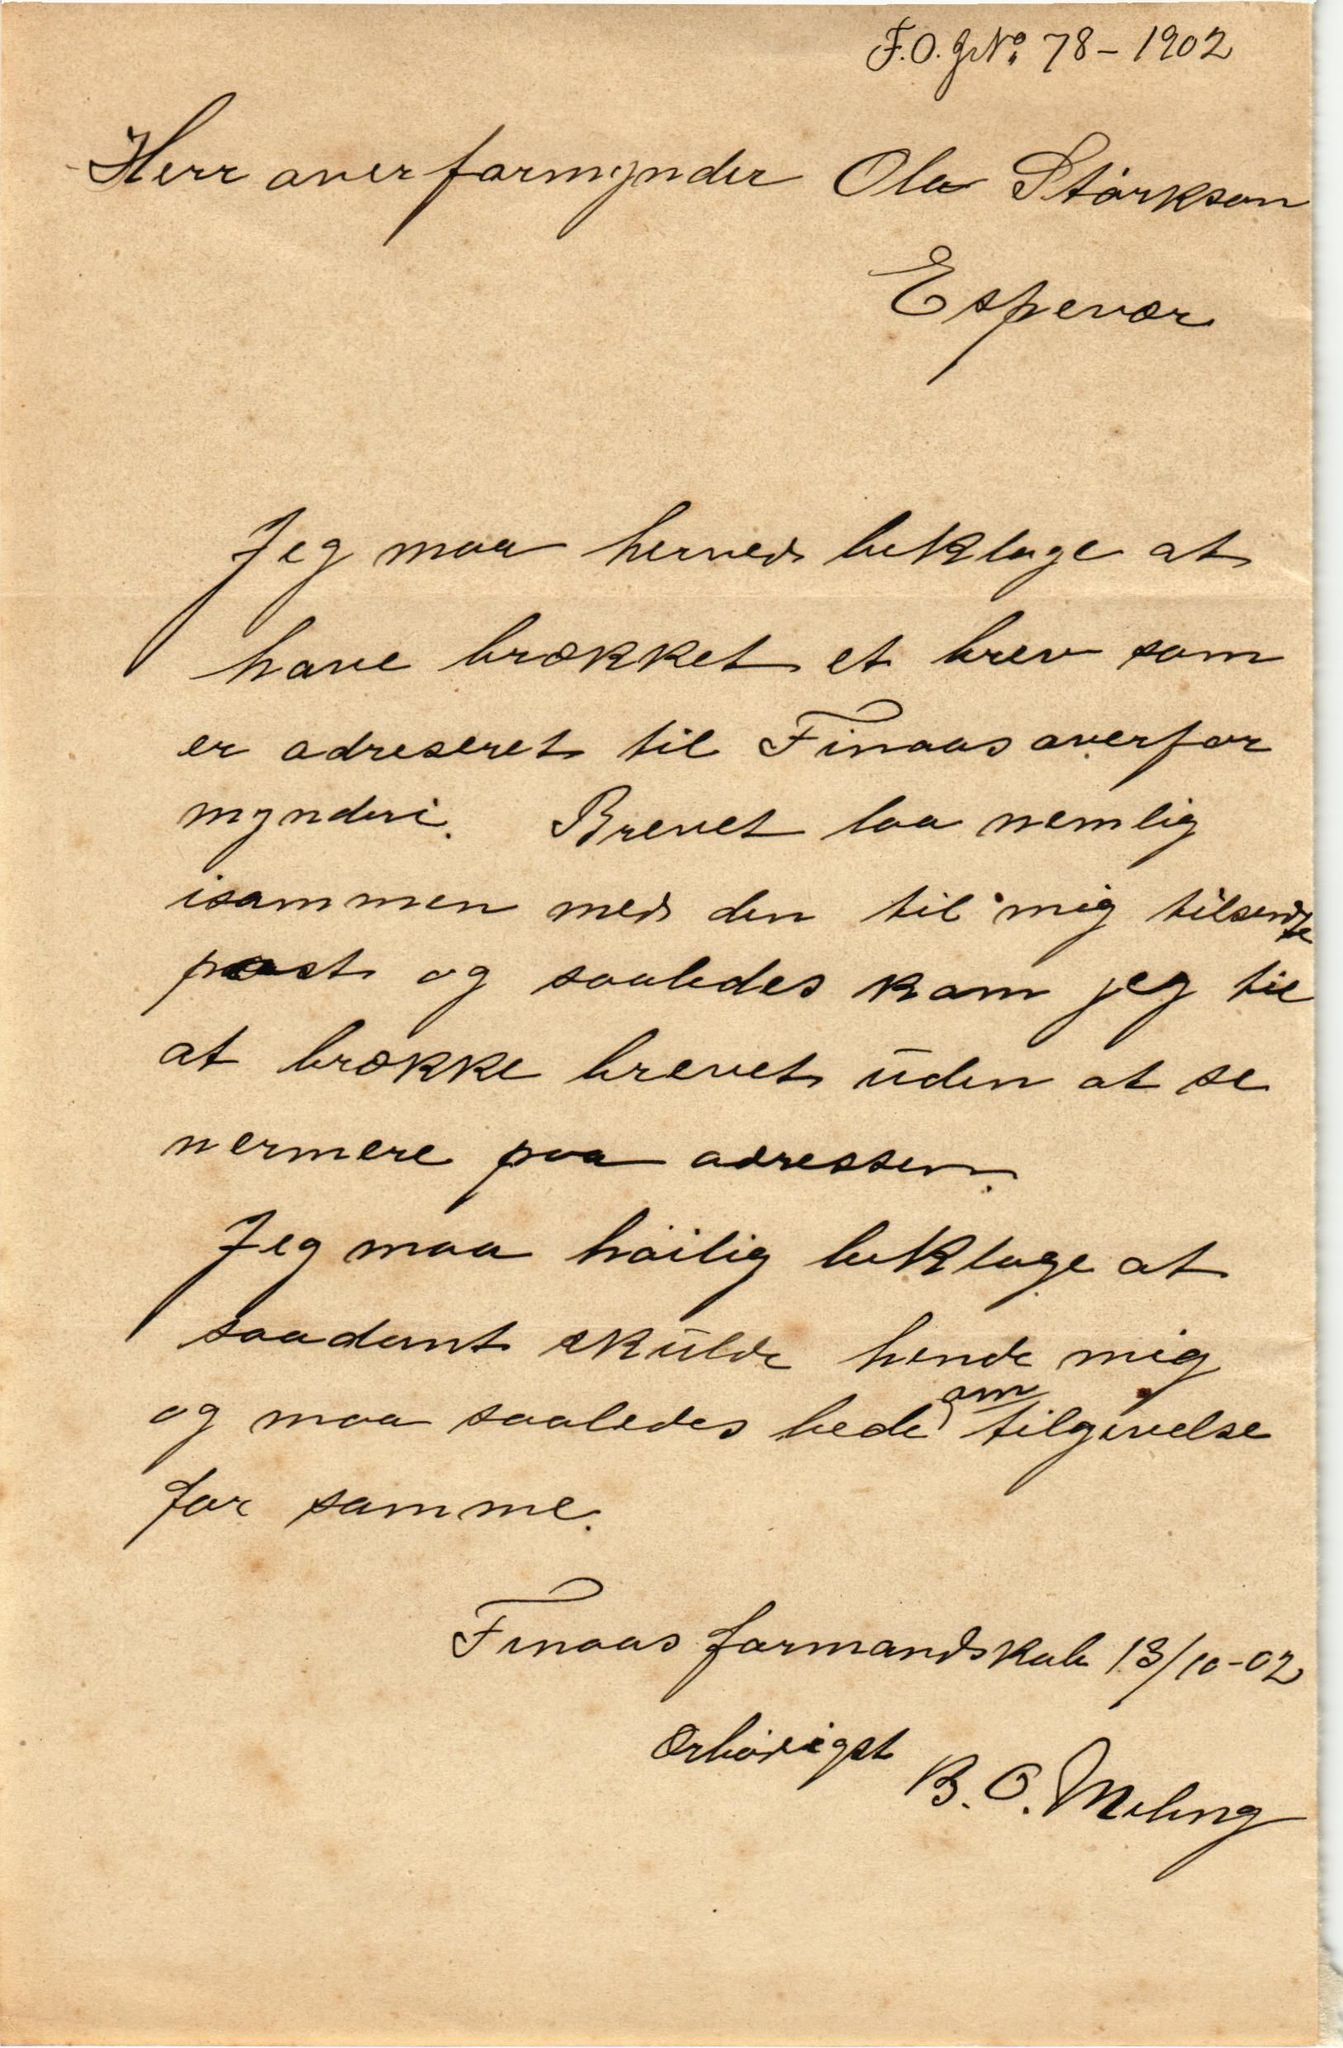 F.O. J№ 78-1902
Herr overformynder Ola Størkson
Espevær
Jeg maa herved beklage at
have brækket et brev som
er adreseret til Finaas overfor
mynderi. Brevet laa nemlig
isammen med den til mig tilsendte
post og saaledes kom jeg til
at brække brevet uden at se
nermere paa adressen.
Jeg maa høilig beklage at
saadant skulde hende mig
og maa saaledes bede om tilgivelse
for samme.
Finaas formandskab 13/10-02
Ærbødigst
B. O. Meling